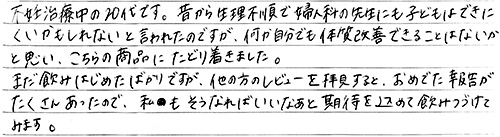 不妊治療中の20代です。昔から生理不順で婦人科の先生にも子どもはできに
くいかもしれないと言われたのですが、何か自分でも体質改善できることはないか
と思い、こちらの商品にたどり着きました。
まだ飲みはじめたばかりですが、他の方のレビューを拝見すると、おめでた報告が
たくさんあったので、私もそうなればいいなあと期待を込めて飲みつづけて
みます。